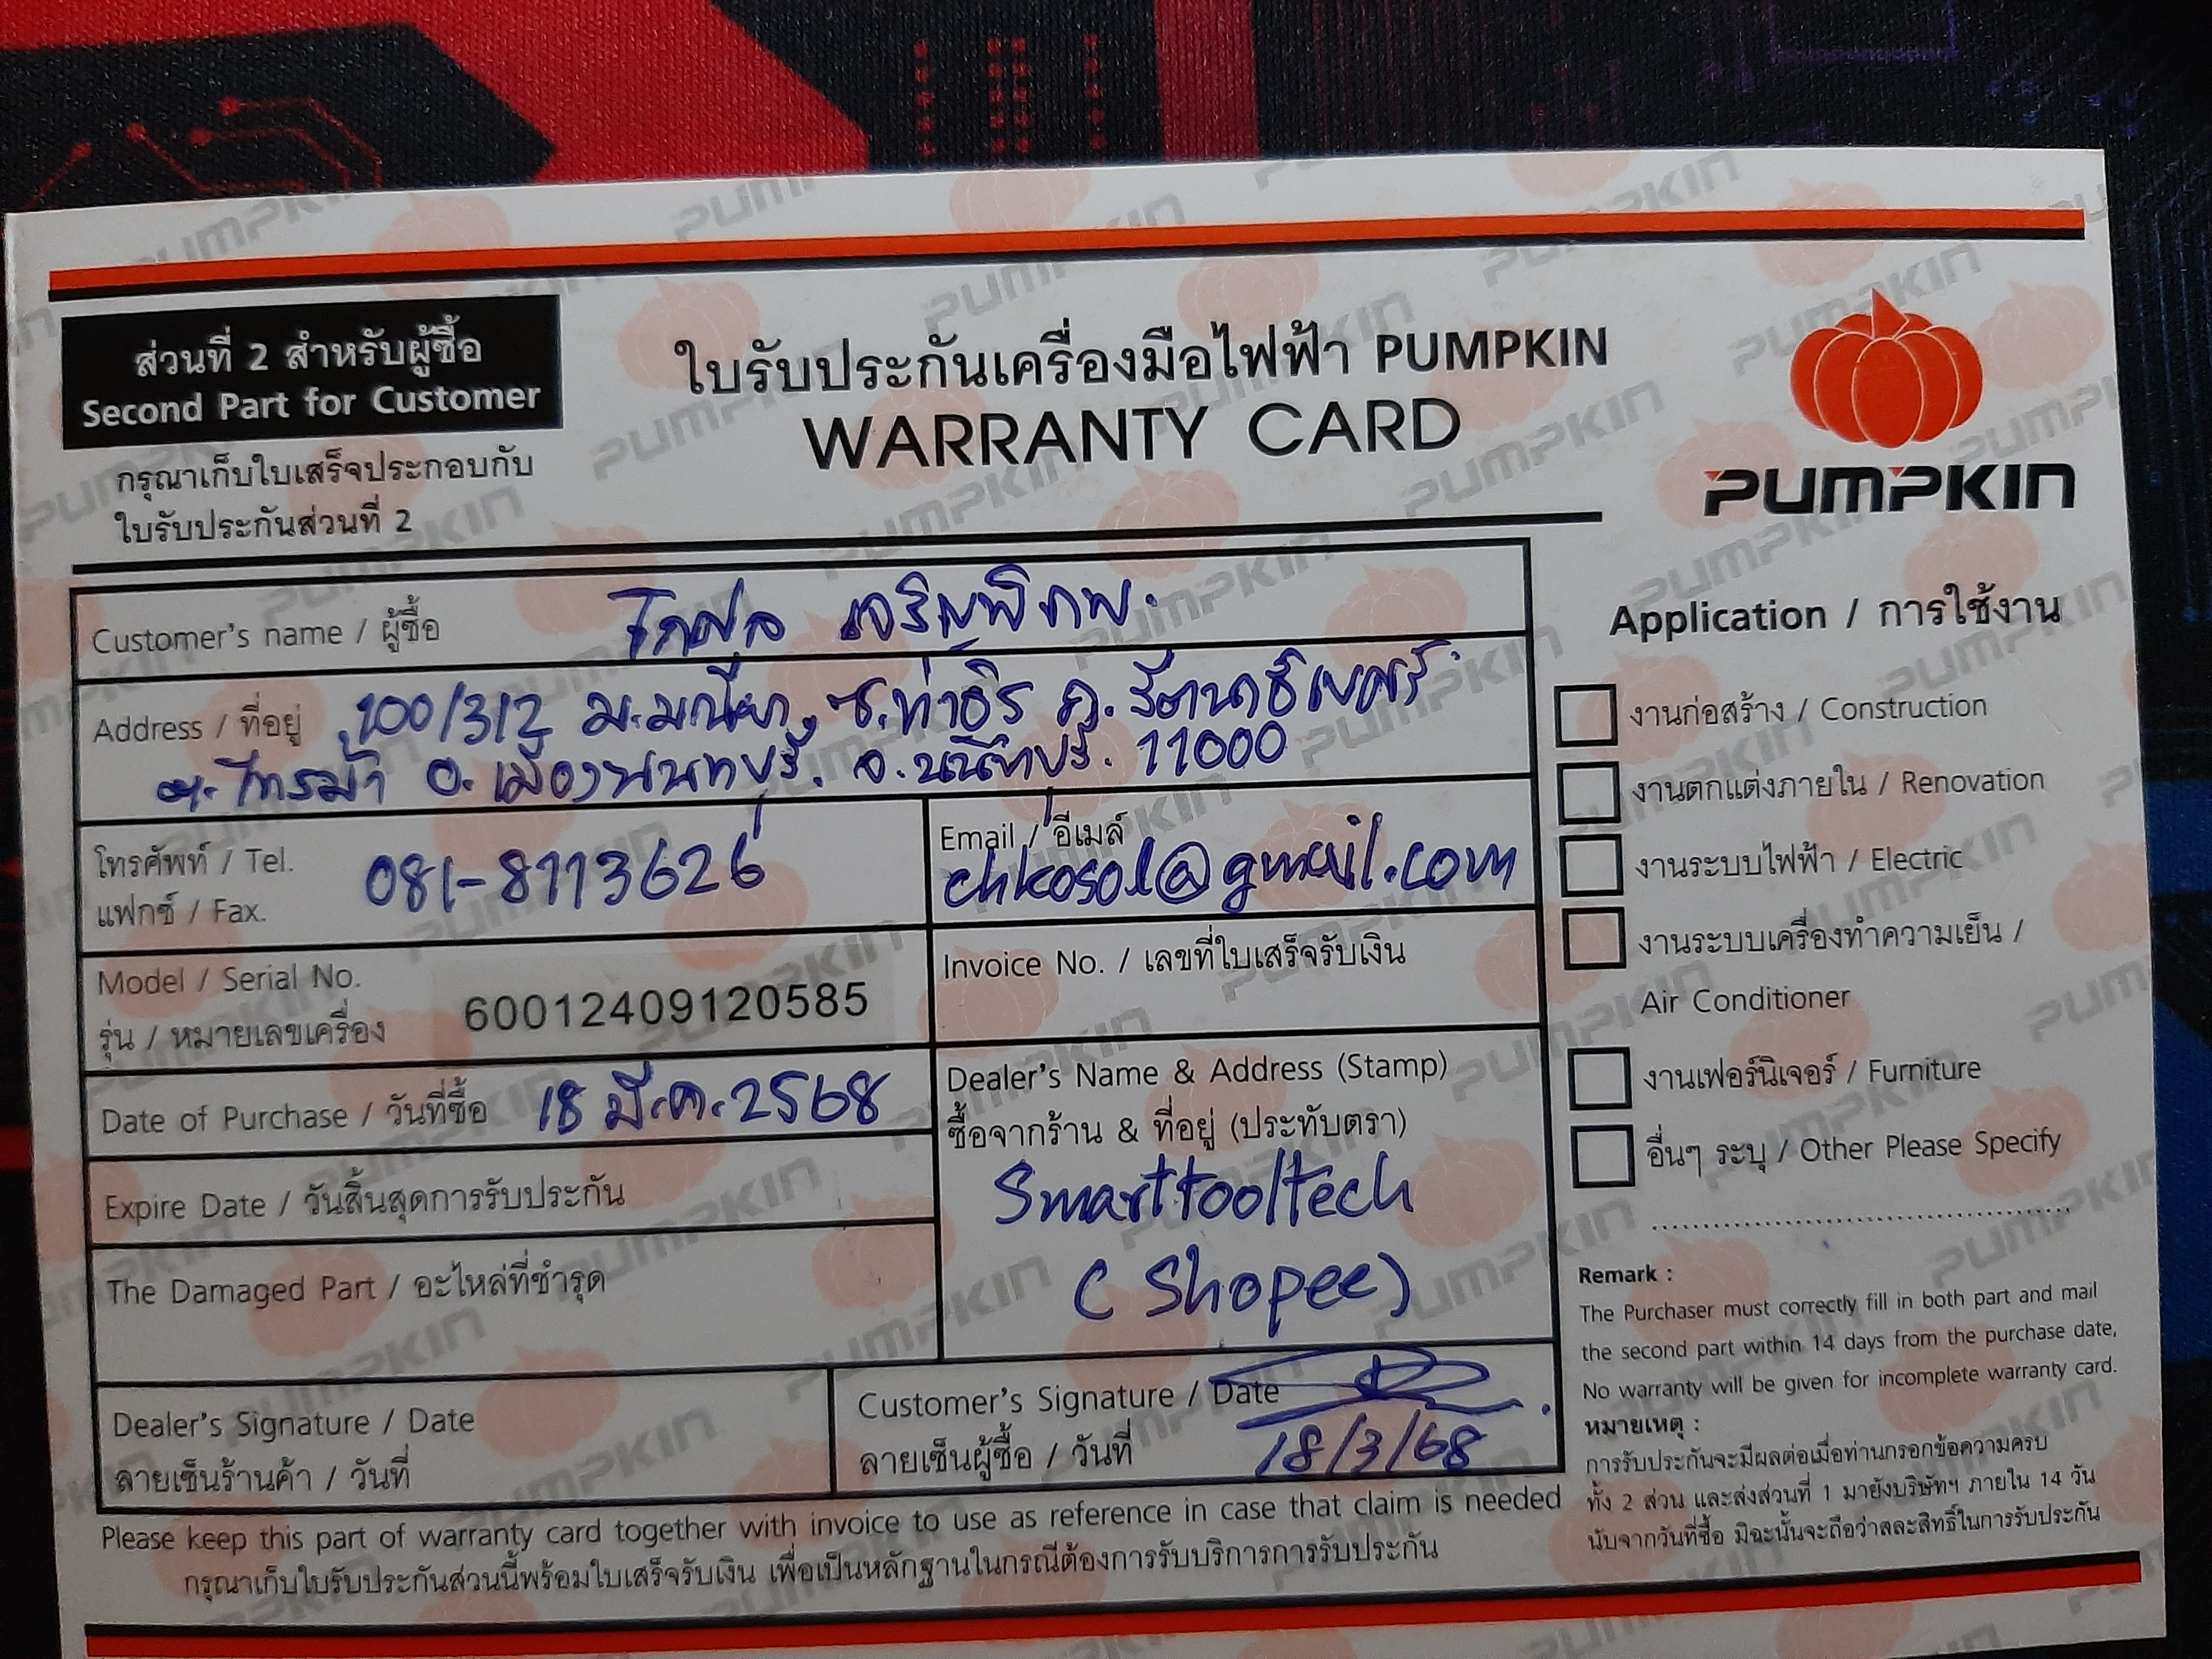 ส่วนที่ 2 สำหรับผู้ซื้อ
Second Part for Customer
กรุณาเก็บใบเสร็จประกอบกับ
ใบรับประกันส่วนที่ 2
ใบรับประกันเครื่องมือไฟฟ้า PUMPKIN
WARRANTY CARD
PUMPKIN
Customer's name / ผู้ซื้อ โกศล เจริญพิภพ.
Address / ที่อยู่ 100/312 ม.มณียา, ซ.ท่าอิฐ ถ.รัตนาธิเบศร์
ต.ไทรม้า อ.เมืองนนทบุรี. จ.นนทบุรี. 11000
โทรศัพท์ / Tel. 081-8113626
แฟกซ์ / Fax.
Email / อีเมล์
chkosol@gmail.com
Model / Serial No.
รุ่น / หมายเลขเครื่อง 60012409120585
Invoice No. / เลขที่ใบเสร็จรับเงิน
Date of Purchase / วันที่ซื้อ 18 มี.ค. 2568
Expire Date / วันสิ้นสุดการรับประกัน
The Damaged Part / อะไหล่ที่ชำรุด
Dealer's Name & Address (Stamp)
ซื้อจากร้าน & ที่อยู่ (ประทับตรา)
Smarttooltech
(Shopee)
Dealer's Signature / Date
ลายเซ็นร้านค้า / วันที่
Customer's Signature / Date
ลายเซ็นผู้ซื้อ / วันที่ 18/3/68
Please keep this part of warranty card together with invoice to use as reference in case that claim is needed
กรุณาเก็บใบรับประกันส่วนนี้พร้อมใบเสร็จรับเงิน เพื่อเป็นหลักฐานในกรณีต้องการรับบริการการรับประกัน
Application / การใช้งาน
งานก่อสร้าง / Construction
งานตกแต่งภายใน / Renovation
งานระบบไฟฟ้า / Electric
งานระบบเครื่องทำความเย็น /
Air Conditioner
งานเฟอร์นิเจอร์ / Furniture
อื่นๆ ระบุ / Other Please Specify
Remark :
The Purchaser must correctly fill in both part and mail
the second part within 14 days from the purchase date,
No warranty will be given for incomplete warranty card.
หมายเหตุ :
การรับประกันจะมีผลต่อเมื่อท่านกรอกข้อความครบ
ทั้ง 2 ส่วน และส่งส่วนที่ 1 มายังบริษัทฯ ภายใน 14 วัน
นับจากวันที่ซื้อ มิฉะนั้นจะถือว่าสละสิทธิ์ในการรับประกัน